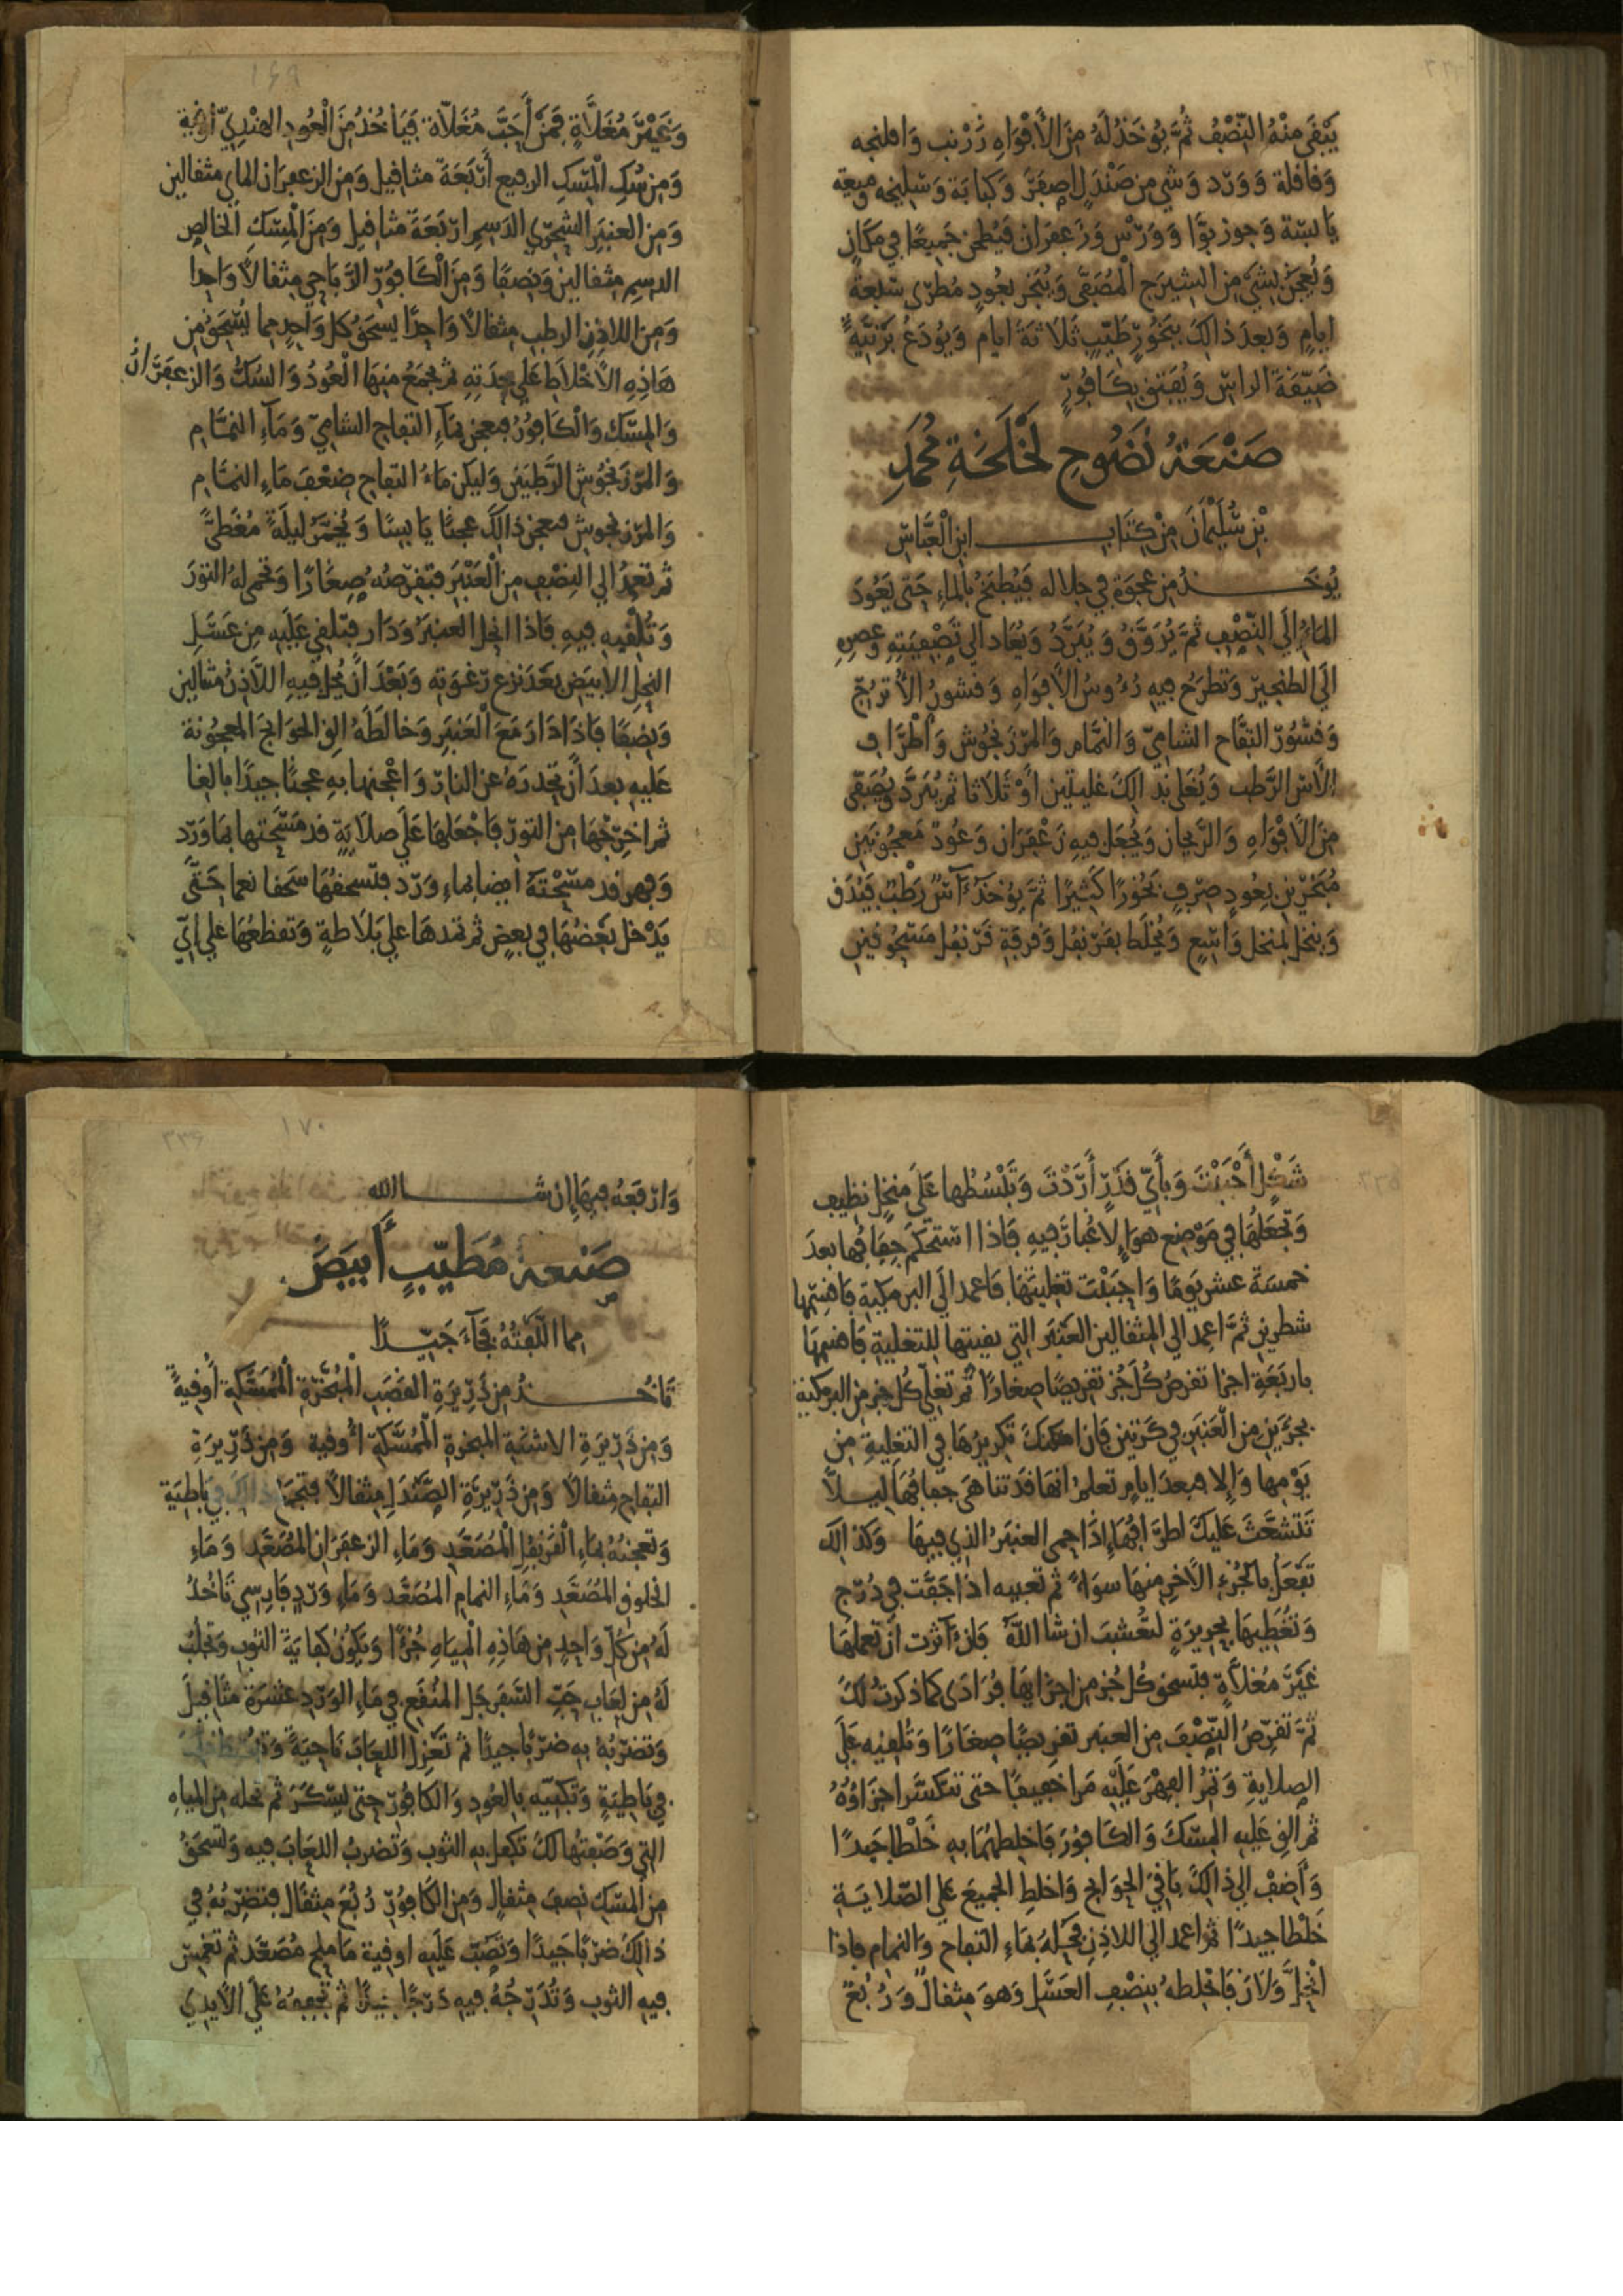 يَبْقَى مِنْهُ النِّصْفُ ثُمَّ يُوخَذُ لَهُ مِنَ الأَفْوَاهِ زَرْنب وَافلنجه
وَقاقلة وَوَرْد وَشي مِن صَنْدَل اصفَر وَكبَابَة وَسَليخه وميعة
يَابسَة وَجوزبَوَّا وَوَرْس وَزَعفرَان فَيُطحن جَمِيعًا فِي مكَان
وَيُعجَنُ بشَيْ مِن الشيرَج المُصَفَّى وَيُبَخر بعُودٍ مُطرّى سَبْعة
ايامٍ وَبعدَ ذَالِكَ بِبَخُورٍ طَيّبٍ ثَلاثَة ايام وَيُودَعُ بَرْنيَّةً
ضَيّقَةَ الراس وَيُفتق بكَافُورٍ
صَنْعَةُ نَضُوحِ لَخْلَخَةِ مُحَمَّدِ
بْنِ سُلَيْمَانَ مِنْ كِتَابِ ابنِ الْعَبَّاسِ
يُوخَذُ مِن عَجْوَةٍ فِي جلاله فَيُطبَخُ بِالماءِ حَتى يَعُودَ
المَاءُ إِلَى النِّصْفِ ثمَّ يُرَوَّقُ وَيُبَرَّدُ وَيُعَاد الي تَصْفِيَتِهِ وعصره
الَى الطنجِير وَتطرَحُ فِيه رُءُوسُ الأَفوَاهِ وَقشورُ الأُترُجّ
وَقشُورُ التفَّاح الشَامِيّ وَالنمَّام وَالمرْزَنجُوش وَأَطْرَاف
الاس الرَّطب وَيُغلى بذَالِكَ غليتَين أَوْ ثَلاثا ثم يُبَرَّدُ وَيُصَفّى
مِنَ الأَفْوَاهِ وَالرَّيحان وَيُجعَل فيهِ زَعْفَرَان وَعُود مَعجُونَين
مُبَخرَيْن بِعُودٍ صِرْفٍ بَخُورًا كَثِيرًا ثمَّ يُوخَذُ آس رَطب فيُدَق
وَينخل بمنخل وَاسِعٍ وَيُخلَط بقرنفُل وَقرفَةِ قرنفُل مَسْحُوقَينِ
وَغَيْرَ مُغَلَّاةٍ فَمَنْ أَحَبَّ مُغَلّاة فَيَاخُذُ مِنَ الْعُودِ الهِنْدِيّ أوقية
وَمِن سُكِّ الْمِسْكِ الرفيع أَرْبَعَة مثاقيل وَمِن الزعفَرَان الماي مثقالين
وَمِن العنبر الشحْرِي الدَسِم اربَعَة مثاقيل وَمِنَ الْمِسْكِ الخالِص
الدسِم مثقالين وَنِصفًا وَمِنَ الْكَافُورِ الرَّبَاحِي مثقالاً وَاحِدًا
وَمِن اللاذِن الرطب مثقالاً وَاحِدًا يسحق كل وَاحِدٍ مما يُسْحَق من
هَاذِهِ الأَخْلاَطِ عَلَى حِدَتِهِ ثم يجمَعُ مِنهَا الْعُودُ وَالسُكُّ وَالزعفَرَانُ
وَالمِسْك وَالْكَافُورُ فيعجن بمَاءِ التفاح الشامِيّ وَمَاءِ النمَّام
وَالمرْزَنجُوش الرَّطبَين وَليكن مَاءُ التفَاح ضِعْف مَاءِ النمَّام
وَالمرْزنجوش فيعجن ذَالِكَ عَجنًا يَابسًا وَيُخَمَّرُ لَيلَةً مُغَطىً
ثم تَعمِدُ إلي النِصْفِ مِن الْعَنْبَرِ فتقرّصُه صِغَارًا وَتحمى لهُ التوْرَ
وَتُلْقِيهِ فِيهِ فَاذَا انحل العنبَرُ وَدَار فتلقي عَلَيه مِن عَسَلِ
النحلِ الابيَض بَعْدَ نزع رَغوَتِه وَبَعْدَ أَن يُحل فيهِ اللَّاذن مثقالين
وَنِصفًا فَاذَا دَارَ مَعَ الْعَنبَرِ وَخَالَطَهُ القِ الحوَائجَ المعجُونة
عَليهِ بعدَ أَن تحدرَهُ عن النار وَاعْجنها بِهِ عجنًا جيدًا بالغا
ثم اخرجْهَا مِن التورِ فَاجْعَلهَا عَلَى صلَايَةٍ قد مَسَّحتها بمَاوَرْد
وَفِهرٍ قد مَسَّحْتهُ ايضا بماءِ وَرْد فتسحَقُهَا سَحقا نعما حَتَّى
يَدْخل بَعْضُهَا فِي بعضٍ ثم تمدهَا علي بَلاَطةٍ وَتقطعُهَا علي ايّ
شَكْلٍ أَحْبَبْتَ وَبِأَيّ قَدْرٍ أَرَدْتَ وَتَبْسُطُها عَلَى مُنخلٍ نظيف
وَتجعَلُهَا فِي مَوْضِعِ هوَاءٍ لاغُبارَ فِيهِ فَاذَا اسْتحكَم جفَافُهَا بعدَ
خمسَة عشر يَومًا وَاحبَبْتَ تغليتهَا فَاعمد الَى البرمكية فَاقسِمها
شطرين ثمَّ اعمِد الي المثقالين العَنْبَر التي بقيتها للتغلية فَاقسِمهَا
باربَعَةِ اجزا تقرصُ كُل جُز تقريصًا صغارًا ثم تغلّي كُل جزٍ مِن البرمكية
بجُزءَين مِن الْعَنبَر فِي كَرتين فَإن امكنكَ تكريرُهَا فِي التغليةِ مِن
يَوْمها وَإلا فبعدَ ايامٍ تعلَم انهَا قَد تنَاهى جفَافُهَا ليلاَّ
تَتشَعَّثَ عَلَيكَ اطرَافُهَا إِذَا حمى العنبَرُ الذِي فِيهَا وَكذالك
تَفْعَلُ بالجُزْءِ الآخرِ مِنهَا سَوَاءً ثم تعبيه اذَا جَفَّت فِي دُرْج
وَتُغَطِيهَا بِحَرِيرَةٍ لتعْشب ان شَا اللَّهُ فَإِن آثرت أَن تعمَلهَا
غَيْرَ مُغلاَّةٍ فتسحق كُل جُزٍ مِن اجزَايِهَا فُرَادَى كما ذكرتُ لكَ
ثمَّ تقرّصُ النِّصْفَ مِن العنبر تقرِيصًا صغَارًا وَتُلقِيه عَلَى
الصلايةِ وَتُمِرُّ الفِهْرَ عَلَيْه مَرا خفيفًا حتى تتكسَّر اجزَاؤُهُ
ثم القِ عَلَيهِ المِسْكَ وَالكَافُورَ فَاخلطهُمَا بِهِ خَلْطًا جَيدًا
وَأَضِفْ الي ذَالِكَ بَاقيَ الحوَايج وَاخلِطِ الجَمِيعَ عَلَي الصّلايَةِ
خَلطًا جيدًا ثم اعمد الي اللاذِن فحُلهُ بمَاءِ التفاح وَالنمام فاذا
انْحلَّ وَلاَن فَاخلِطهُ بِنِصْفِ العَسَلِ وَهوَ مثقالٌ وَرُبُعٌ
وَارْفَعهُ فِيهَا إن شاالله
صَنعة مُطَيّبٍ أَبيَضَ
مما الَّفْتُهُ فجَاءَ جَيّدًا
تَاخُذُ مِن ذَرِيْرَةِ القَصَبِ الْمُبَخَّرَةِ الْمُمَسَّكةِ أُوقيةً
وَمِن ذَرِيرَةِ الاشنَةِ المبخرةِ الْمُمَسَّكة اوقية وَمِن ذَرِيرَةِ
التفاحِ مِثقالاً وَمِن ذَرِيرَةِ الصَّنْدَلِ مِثقالاً فتجمَع ذالك فِي بَاطيَة
وَتعجنُهُ بمَاءِ الْقَرَنفُل الْمُصَعَّدِ وَمَاءِ الزعفرَان المُصَعَّدِ وَمَاءِ
الخلوق المُصَعَّدِ وَمَاءِ النمام المُصَعَّدِ وَمَاءِ وَرْدٍ فَارِسِي تَاخُذُ
لَهُ مِن كُلِّ وَاحِدٍ مِن هَاذِهِ الْمِيَاهِ جُزْءًا وَيَكُونُ كفَايَةَ الثوب وَتجلبُ
لَهُ مِن لعَاب حَبِّ السَّفَرجَلِ المُنْقَع فِي مَاءِ الوَرْدِ عشرَة مثَاقيل
وَتَضْرِبُهُ بهِ ضربًا جيدًا ثم تعْزِلُ اللعَابَ نَاحِيَةً
فِي بَاطِيَةٍ وَتكبيّه بالعُودِ وَالكَافُورِ حتى ليسْكَرَ ثم تحله مِن المِيَاهِ
التي وَصَفتُهَا لكَ تكفل به الثوب وَتضربُ اللعَابَ فيه وَتسحَقُ
مِن المِسْكِ نِصفَ مِثقالٍ وَمِن الكَافُورِ رُبُعَ مِثقَال فتضربُهُ فِي
ذَالِكَ ضَربًا جَيدًا وَتَصُبّ عَلَيهِ اوقية مَاملح مُصَعَّد ثم تغمِسُ
فِيهِ الثوب وَتُدَرِّجُهُ فِيهِ دَرْجًا ثم تجففهُ عَلَى الأَيدِي